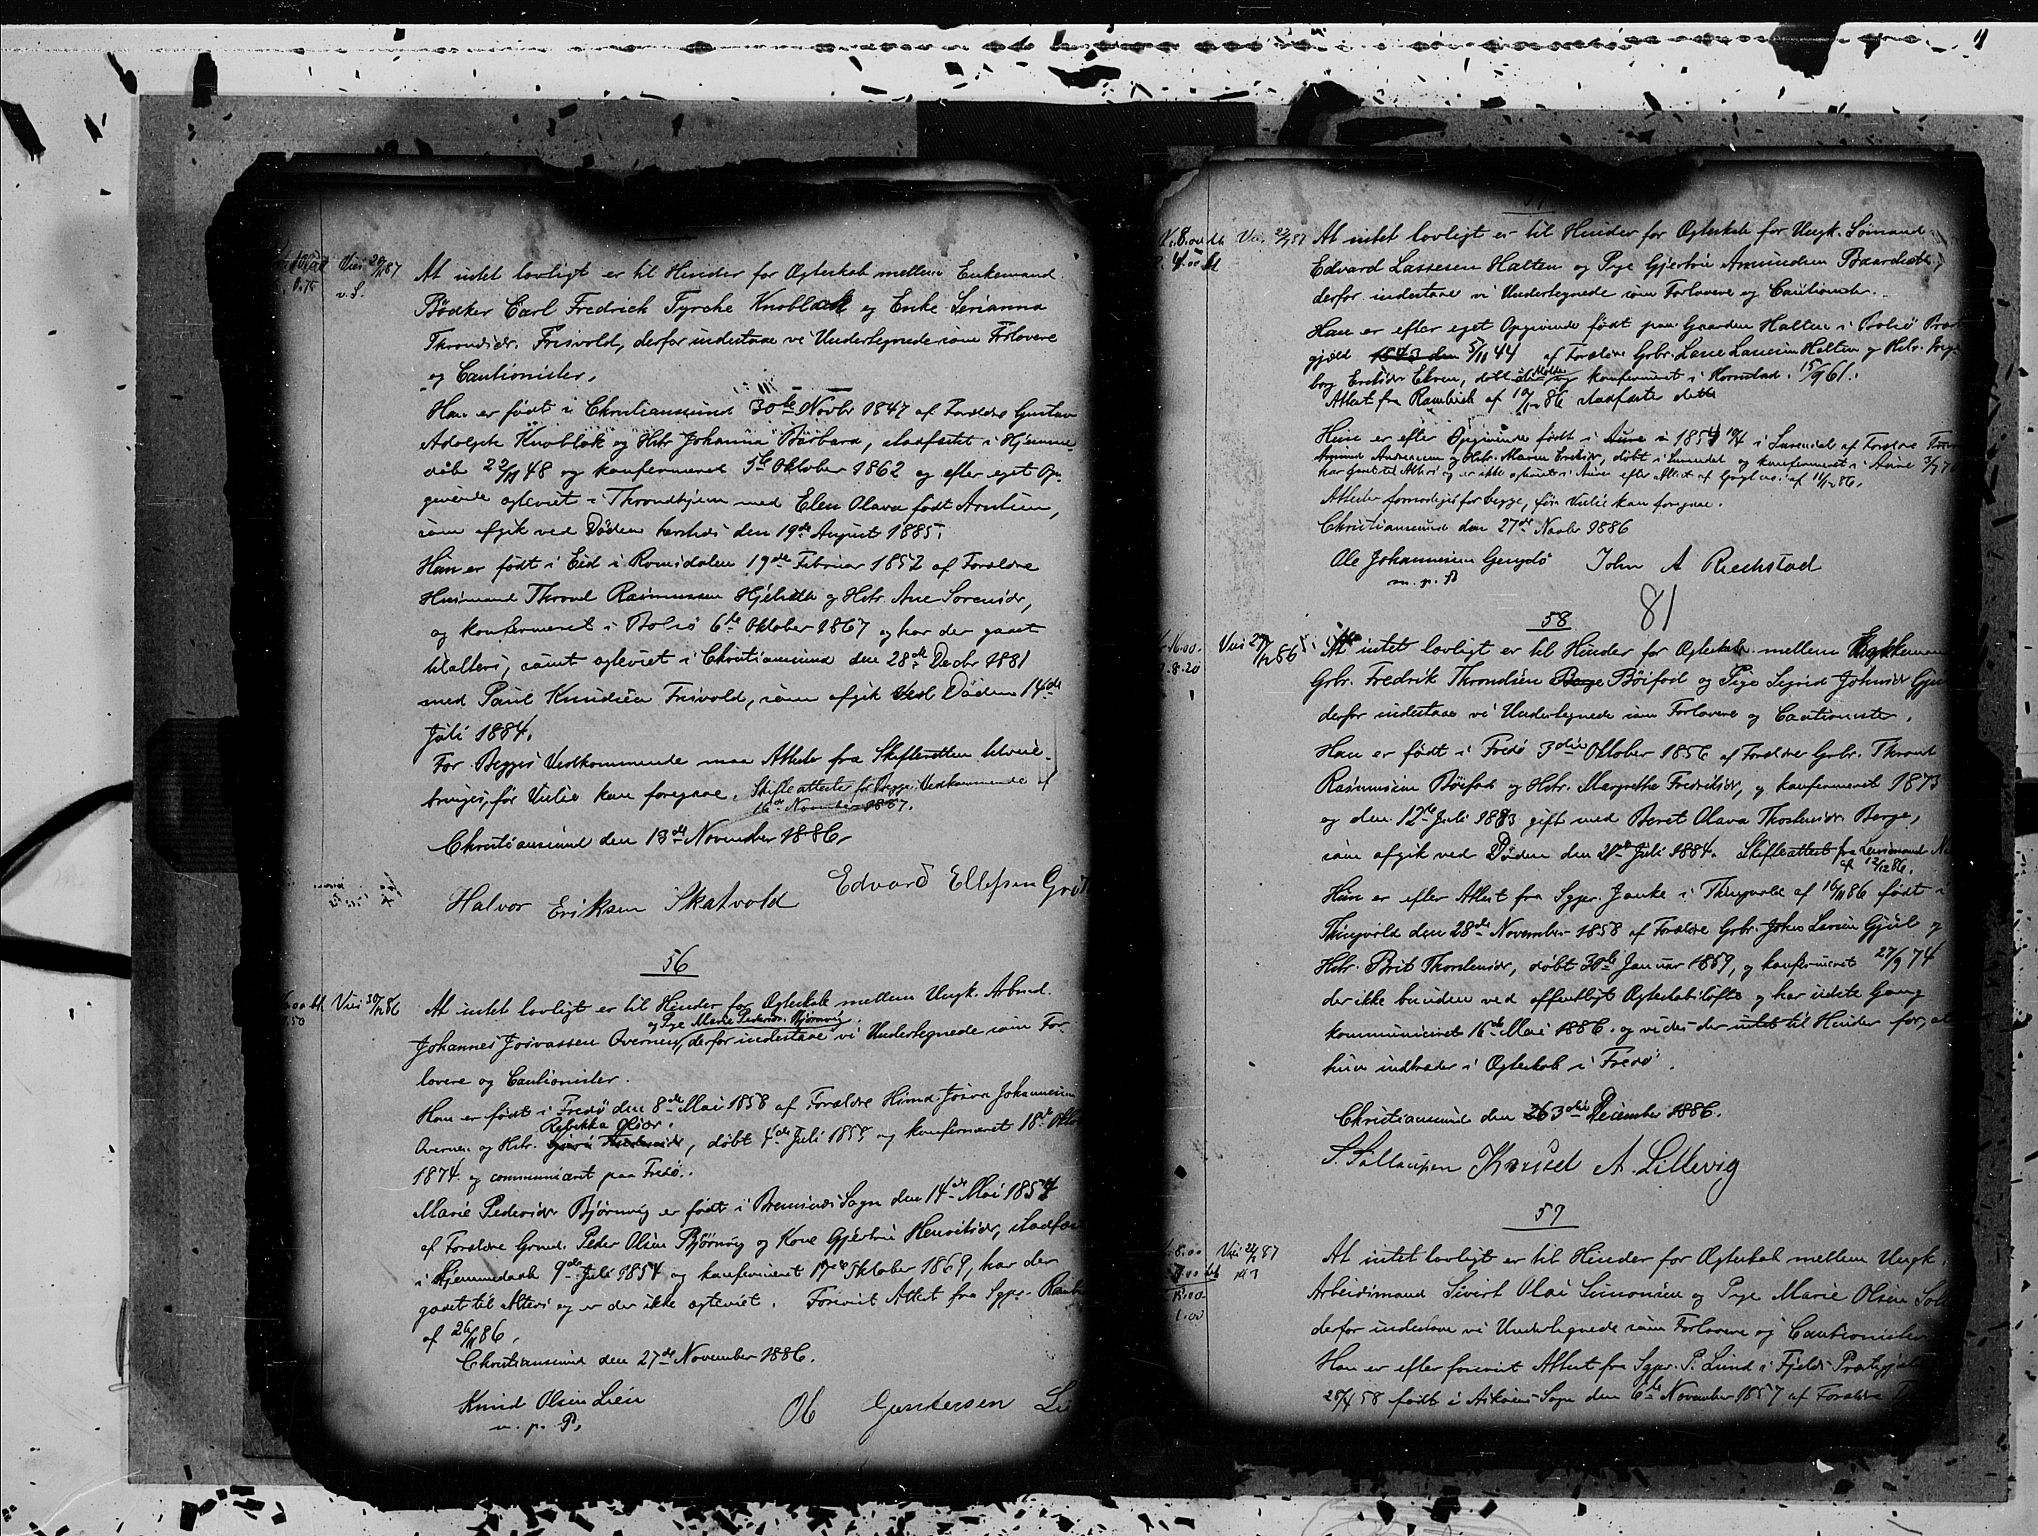 Viet 20/1 87
v. S.
0.75
At intet lovligt er til Hinder for Ægteskab mellem Enkemand
Bødker Carl Fredrich Tyrche Knoblock og Enke Serianna
Throndsdr. Frisvold, derfor indestaae vi Undertegnede som Forlovere
og Cautionister.
Han er født i Christianssund 30te Novbr 1847 af Forældre Gustav
Adolph Knoblok og Hstr Johanna Barbara, stadfæstet i Hjemme
døbt 22/11 48 og konfirmeret 5te Oktober 1862 og efter eget Op-
givende ægteviet i Throndhjem med Elen Olava født Arntsen,
som afgik ved Døden hersteds den 19de August 1885.
Hun er født i Eid i Romsdalen 19de Februar 1852 af Forældre
Husmand Thrond Rasmussen Hjelset og Hstr. Ane Sørensdr,
og konfirmeret i Bolsø 6te Oktober 1867 og har der gaaet
tilalters, samt ægteviet i Christianssund den 28de Decbr 1881
med Paul Knudsen Frisvold, som afgik ved Døden 14de
Juli 1884.
For Begges Vedkommende maa Attester fra Skifteretten tilveie-
bringes, før Vielse kan foregaae. Skifteattester for Begges Vedkommende af
16de November 1887.
Christianssund den 13de November 1886.
Halvor Eriksen Skatvold Edvard Ellefsen
56
Viet 30/12 86
At intet lovligt er til Hinder for Ægteskab mellem Ungk. Arbmd.
og Pige Marie Pedersdr. Bjørnvig
Johannes Josvassen Overnes, derfor indestaae vi Undertegnede som For-
lovere og Cautionister.
Han er født i Fredø den 8de Mai 1858 af Forældre Husmd. Josva Johannesen
Rebekka Olsdr.
Overnes og Hstr. døbt 4de Juli 1858 og konfirmeret 18de Oktbr
1874 og communiceret paa Fredø.
Marie Pedersdr Bjørnvig er født i Bremsnes Sogn den 14de Mai 1854
af Forældre Grmd. Peder Olsen Bjørnvig og Kone Gjertrui Henriksdr, stadfæst
i Hjemmedaab 9de Juli 1854 og konfirmeret 17de Oktober 1869, har der
gaaet til Alters og er der ikke ægteviet. Forevist Attest fra Sgpr.
af 26/11 86.
Christianssund den 27de November 1886.
Knud Olsen Lien
m. p. P.
Ol Gundersen
Viet
At intet lovligt er til Hinder for Ægteskab for Ungk. Sømand
Edvard Lassesen Halten og Pige Gjertrui Amundsen
derfor indestaae vi Undertegnede som Forlovere og Cautionister.
Han er efter eget Opgivende født paa Gaarden Halten i Bolsø Præst
gjæld 1843 den 5/11 44 af Forældre Grbr. Lasse Lassesen Halten og Hstr. Inge-
borg Eriksdr Ekren, døbt Molde og konfirmeret i Kornstad. 15/9 61.
Attest fra af 10/12 86 stadfæster dette
Hun er efter Opgivende født i Aure i 1854 i Surendal af Forældre
Amund Andreasen og Hstr. Maren Eriksdr, døbt i Surendal og konfirmeret i Aure
har gaaet til Alters og er ikke ægteviet i Aure efter Attest af af 11/12 86.
Attester formodiges for begge, før Vielse kan foregaae.
Christianssund den 27de Novbr 1886
Ole Johannesen Gengdø John A Reckstad
m. p. P
81
58
Viet 29/12 86
8.20
At intet lovligt er til Hinder for Ægteskab mellem Enkemand
Grbr. Fredrik Throndsen Bøifod og Pige Sigrid Johnsdr
derfor indestaae vi Undertegnede som Forlovere og Cautionister.
Han er født i Fredø 3die Oktober 1856 af Forældre Grbr. Thrond
Rasmussen Bøifod og Hstr. Margrethe Fredriksdr, og konfirmeret 1873
og den 12te Juli 1883 gift med Beret Olava Thorstensdr Berge,
som afgik ved Døden den 21de Juli 1884. Skifteattest fra Lensmand
af 12/12 86.
Hun er efter Attest fra Sgpr. Janke i Thingvold af 16/11 86 født i
Thingvold den 28de November 1858 af Forældre Grbr. John Larsen Gjul og
Hstr. Brit Thorstensdr, døbt 30te Januar 1859, og konfirmeret 27/9 74
der ikke bunden ved offentligt Ægteskabsløfte og har sidste Gang
kommuniceret 16de Mai 1886 og vides der intet til Hinder for, at
hun indtræder i Ægteskab i Fredø.
Christianssund den 3die December 1886.
S. Sallaupsen Knud A. Lillevig
59
Viet 22/1 87
8.00
1.00
At intet lovligt er til Hinder for Ægteskab mellem Ungk.
Arbeidsmand Sivert Olai Simonsen og Pige Marie Olsen
derfor indestaae vi Undertegnede som Forlovere og Cautionister
Han er efter forevist Attest fra Sgpr. P. Lund i Fjelds Præstegjæld
født i Askøens Sogn den 6te November 1857 af Forældre